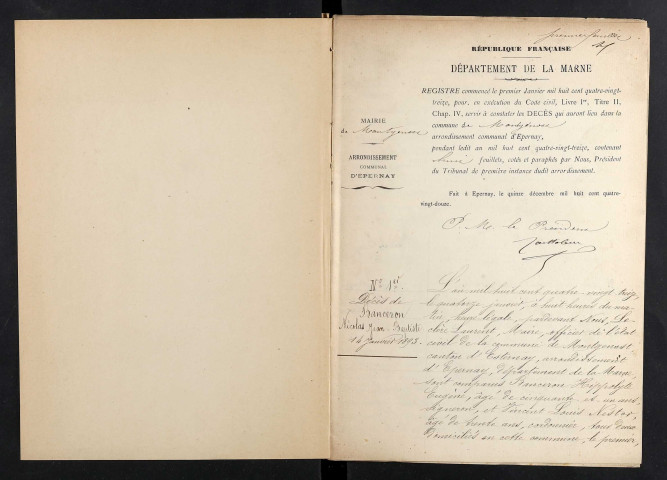 RÉPUBLIQUE FRANÇAISE
DÉPARTEMENT DE LA MARNE
REGISTRE commencé le premier Janvier mil huit cent quatre-vingt-
treize, pour, en exécution du Code civil, Livre Ier, Titre II,
Chap. IV, servir à constater les DÉCÈS qui auront lieu dans la
commune de Montgenost
arrondissement communal d'Epernay,
pendant ledit an mil huit cent quatre-vingt-treize, contenant
feuillets, cotés et paraphés par Nous, Président
du Tribunal de première instance dudit arrondissement.
Fait à Epernay, le quinze décembre mil huit cent quatre-
vingt-douze.
P. Mr. le Président
MAIRIE
de Montgenost
ARRONDISSEMENT
COMMUNAL
D'ÉPERNAY
No 1er
Décès de
Banceron
Nicolas Jean-Baptiste
14 Janvier 1893
L'an mil huit cent quatre-vingt treize
le quatorze janvier, à huit heures du ma-
tin, heure légale, pardevant Nous,
Laurent, Maire, officier de l'état
civil de la commune de Montgenost
canton d'Esternay, arrondissement
d'Epernay, département de la Marne
sont comparus Banceron Hippolyte
Eugène, âgé de cinquante et un ans
vigneron, et Vincent Louis Nestor,
âgé de trente ans, cordonnier, tous deux
domiciliés en cette commune, le premier,